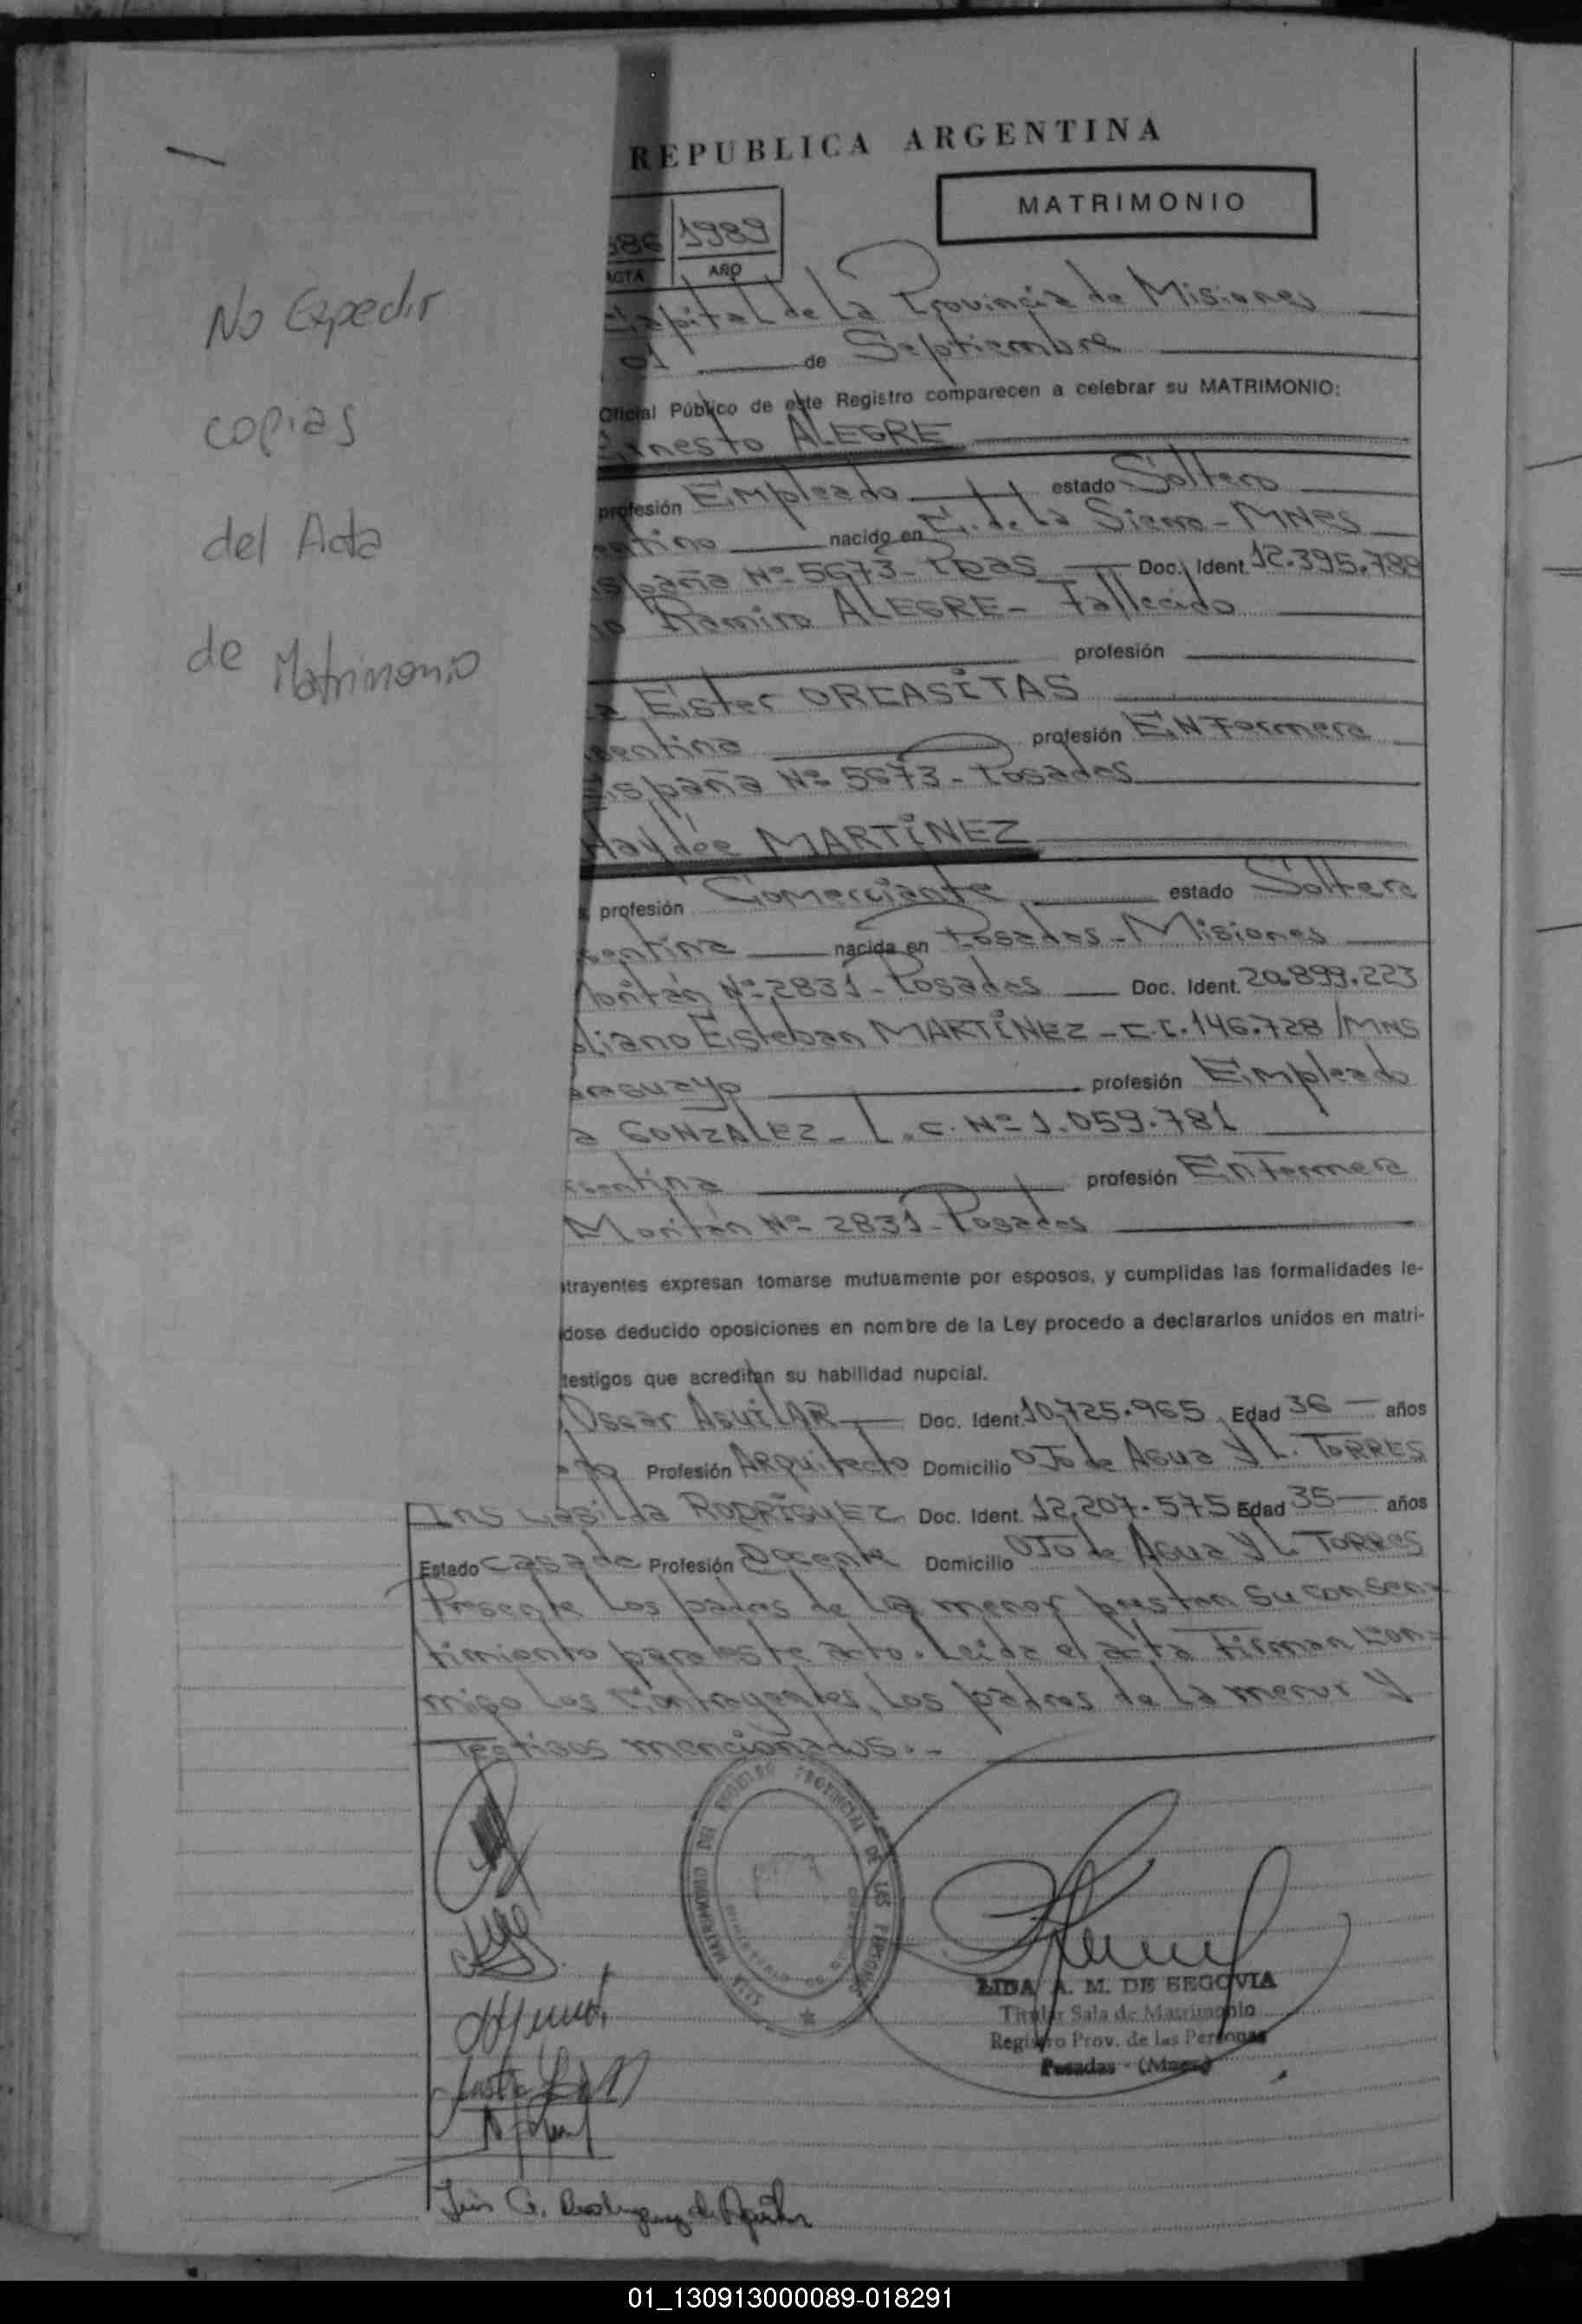 REPUBLICA ARGENTINA
MATRIMONIO
86 1989
ACTA AÑO
No Expedir
copias
del Acta
de Matrimonio
Capital de la Provincia de Misiones
01 de Septiembre
Oficial Público de este Registro comparecen a celebrar su MATRIMONIO:
Ernesto ALEGRE
profesión Empleado estado Soltero
entino nacido en C. de la Sierra - MNES
España Nº 5673 - Pdas Doc. Ident. 12.395.789
no Ramiro ALEGRE - Fallecido
profesión
a Ester ORCASITAS
gentina profesión ENFermera
España Nº 5673 - Posadas
Haydée MARTíNEZ
profesión Comerciante estado Soltera
gentina nacida en Posadas - Misiones
Moritán Nº 2831 - Posadas Doc. Ident. 20.899.223
liano Esteban MARTíNEZ - C.I. 146.728 /MNS
araguayo profesión Empleado
a GONZALEZ - L.C. Nº 1.059.781
gentina profesión Enfermera
Moritán Nº 2831 - Posadas
trayentes expresan tomarse mutuamente por esposos, y cumplidas las formalidades le-
dose deducido oposiciones en nombre de la Ley procedo a declararlos unidos en matri-
testigos que acreditan su habilidad nupcial.
Oscar AGUILAR Doc. Ident. 10.725.965 Edad 36 años
do Profesión ARquitecto Domicilio OJo de AGua y L. TORRES
RODRíGUEZ Doc. Ident. 12.207.575 Edad 35 años
Estado casada Profesión Docente Domicilio OJo de AGua y L. TORRES
Presente los padres de la menor prestan su consen-
timiento para este acto. Leida el acta Firman con-
migo los Contrayentes, los padres de la menor y
Testigos mencionados.-
REGISTRO PROVINCIAL DE LAS PERSONAS
LIDA A. M. DE SEGOVIA
Titular Sala de Matrimonio
Registro Prov. de las Personas
Posadas - (Mnes)
01_130913000089-018291